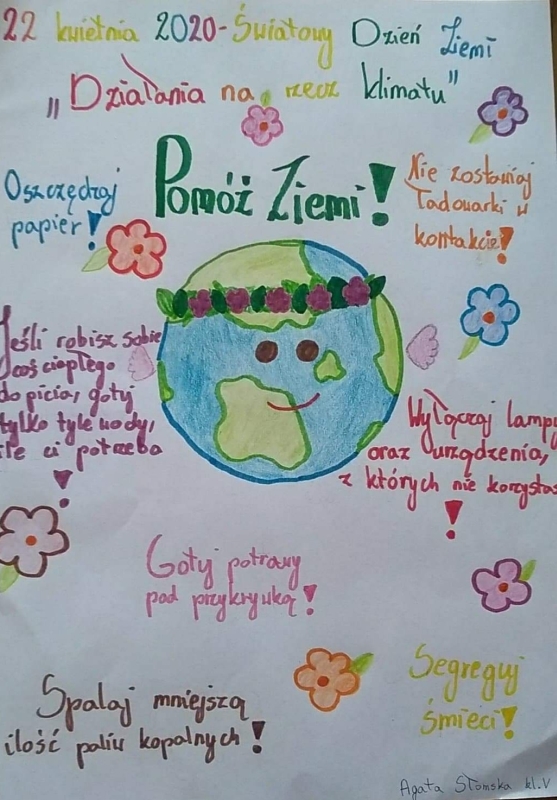 22 kwietnia 2020-Światowy Dzień Ziemi
„Działania na rzecz klimatu"
Pomóż Ziemi!
Oszczędzaj
papier!
Nie zostawiaj
ładowarki w
kontakcie!
Jeśli robisz sobie
coś ciepłego
do picia, gotuj
tylko tyle wody,
ile ci potrzeba
!
Wyłączaj lampy
oraz urządzenia,
z których nie korzystasz
!
Gotuj potrawy
pod przykrywką!
Segreguj
śmieci!
Spalaj mniejszą
ilość paliw kopalnych!
Agata Słomska kl.V